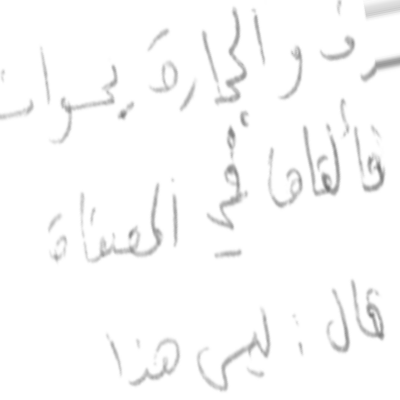 والحجارة بحوات
فألقاها في المصفاة
قال : ليس هذا